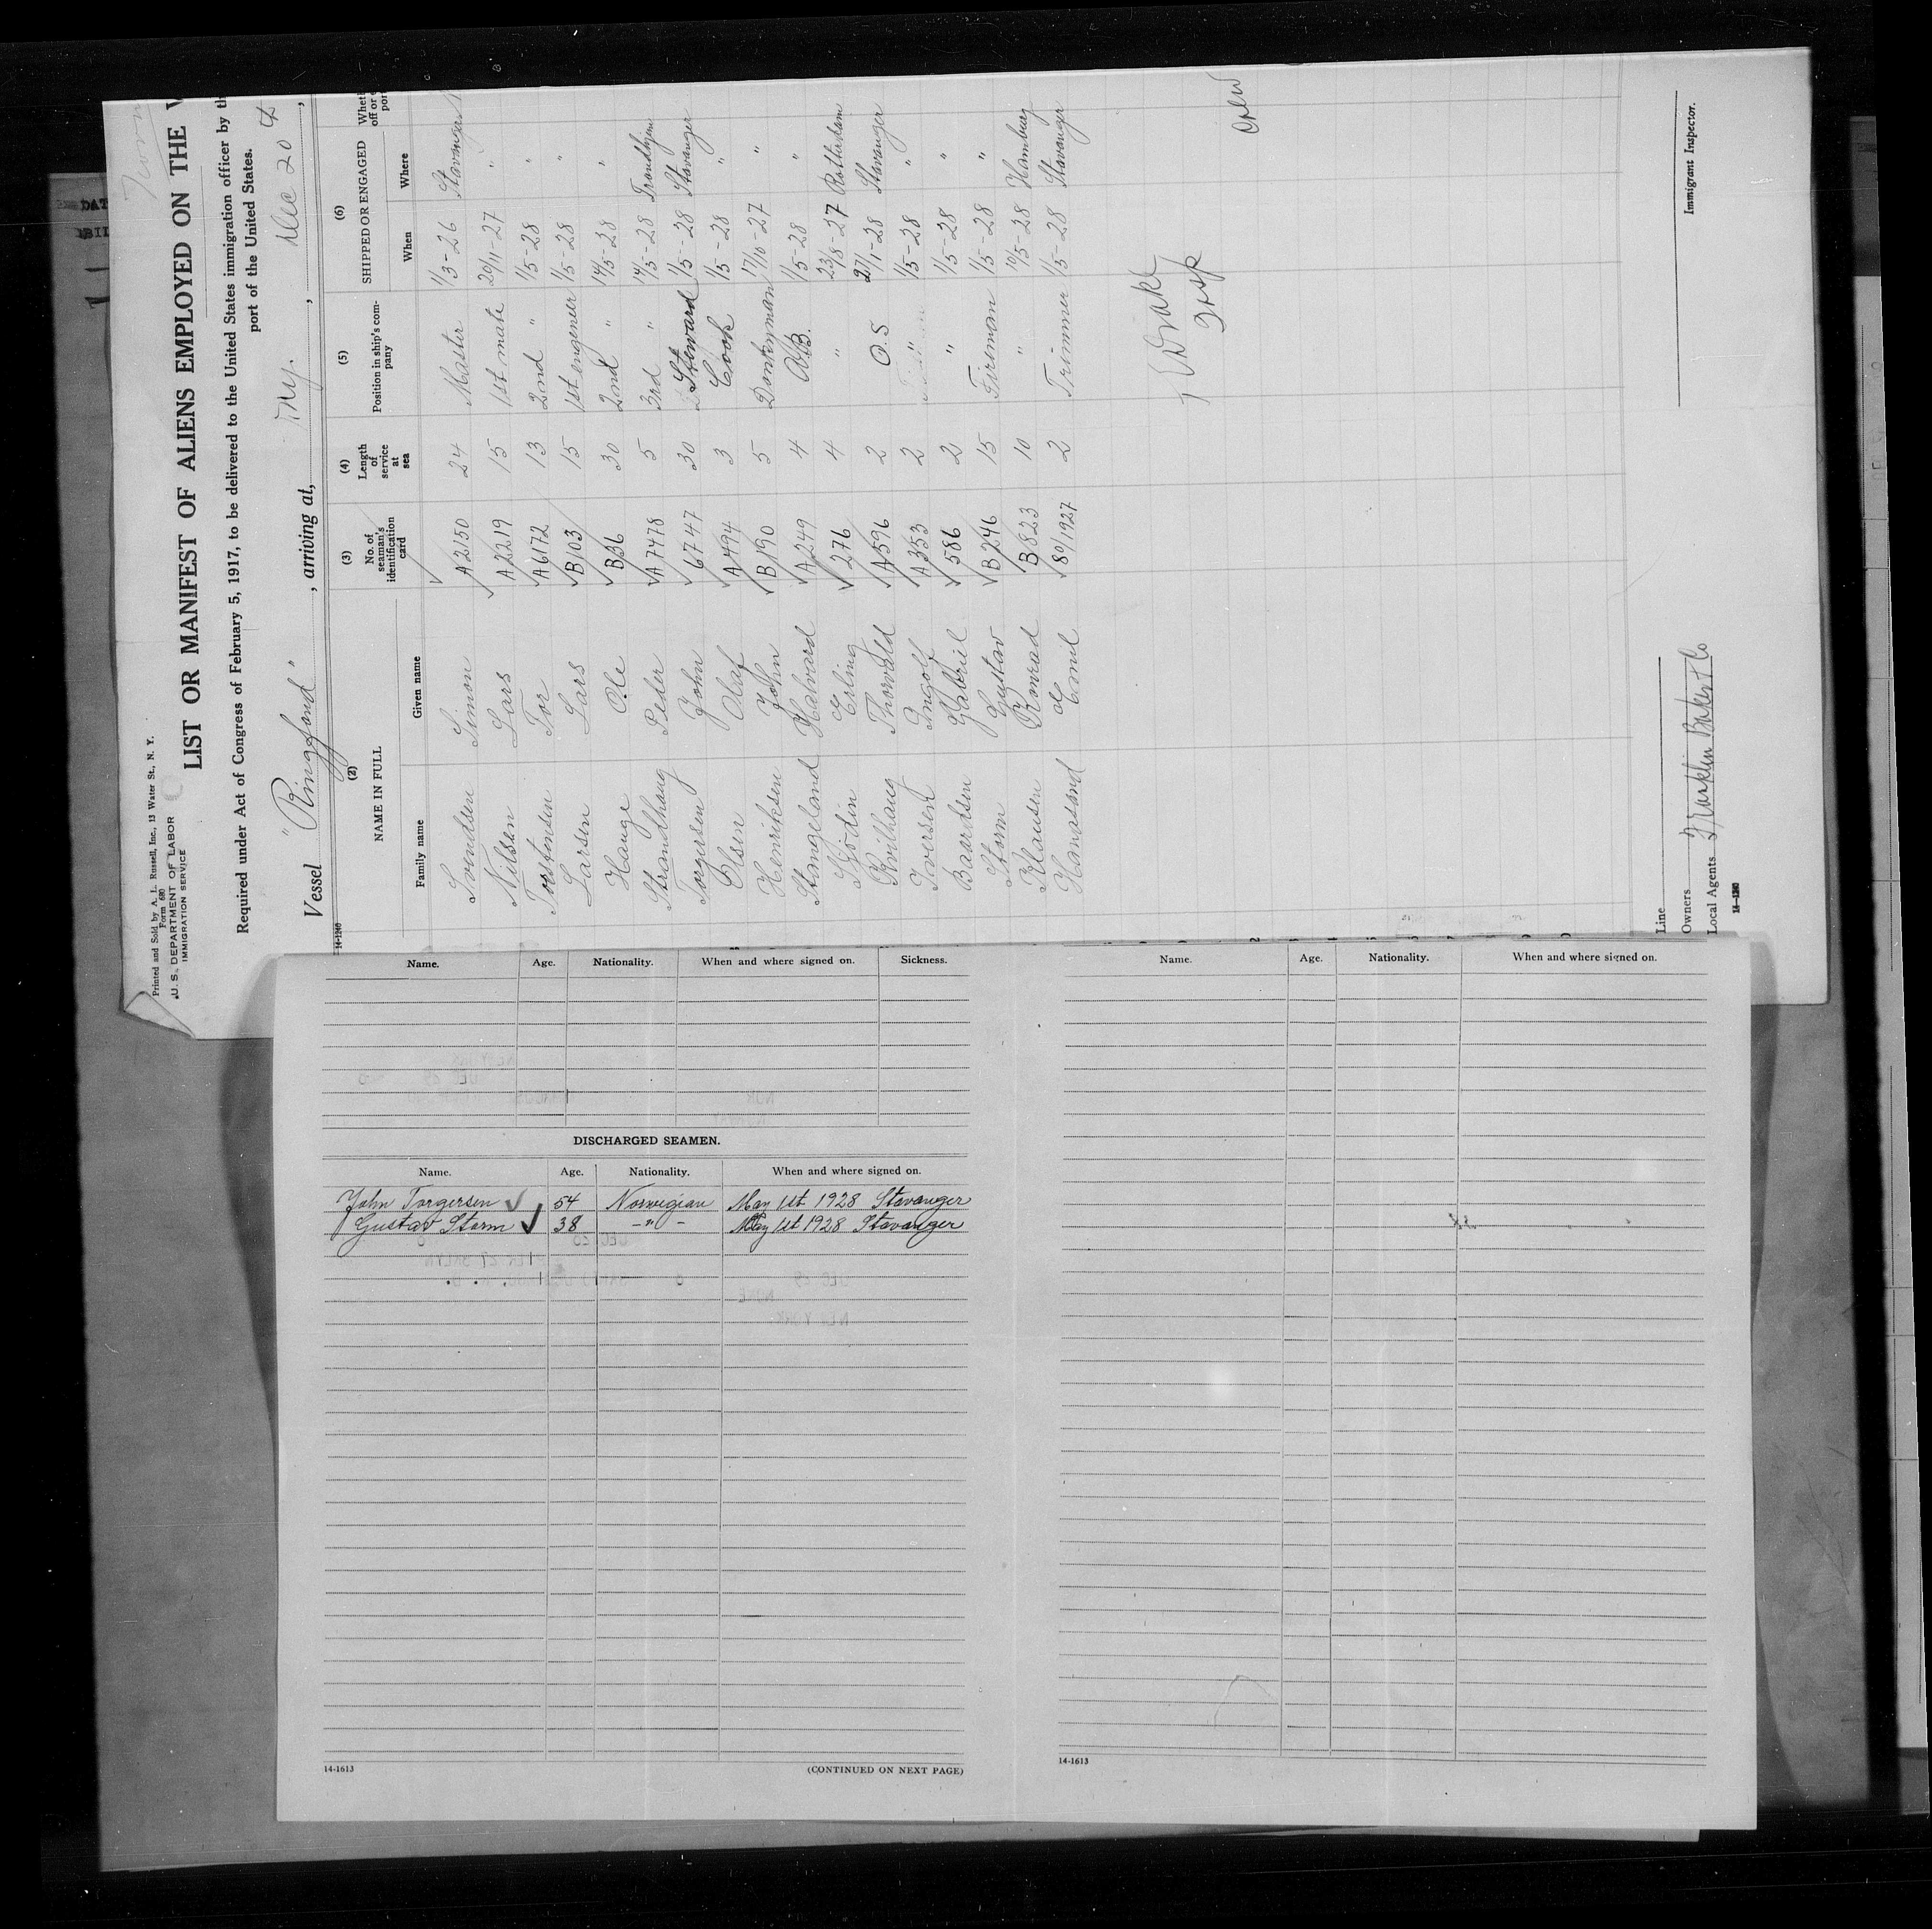 Printed and Sold by A. L. Russell, Inc., 13 Water St., N. Y.
Form 680
U. S. DEPARTMENT OF LABOR
IMMIGRATION SERVICE
LIST OR MANIFEST OF ALIENS EMPLOYED ON THE
Required under Act of Congress of February 5, 1917, to be delivered to the United States immigration officer by th
port of the United States.
Vessel "Ringfond" , arriving at, Ny. , Dec 20
14-1240
(2) (3) (4) (5) (6)
NAME IN FULL No. of seaman's identification card Length of service at sea Position in ship's company SHIPPED OR ENGAGED
Family name Given name When Where
Svendsen Simon A 2150 24 Master 1/3-26 Stavanger
Nilsen Lars A 2219 15 1st mate 20/11-27 "
Torstensen Tor A 6172 13 2nd " 1/5-28 "
Larsen Lars B 103 15 1st engeneer 1/5-28 "
Hauge Ole B 36 30 2nd " 14/5-28 "
Strandhaug Peder A 7478 5 3rd " 14/5-28 Trondhjem
Torgersen John 6747 30 Steward 1/5-28 Stavanger
Olsen Olaf A 494 3 Cook 1/5-28 "
Henriksen John B 190 5 Donkeyman 17/10-27 "
Stangeland Halvard A 249 4 A.B. 1/5-28 "
Sjödin Erling 276 4 " 23/8-27 Rotterdam
Kvilhaug Thorvald A 596 2 O.S 27/1-28 Stavanger
Iversen Ingolf A 353 2 " 1/5-28 "
Baardsen Gabriel 586 2 " 1/5-28 "
Storm Gustav B 246 15 Fireman 1/5-28 "
Klausen Konrad B 823 10 " 10/5-28 Hamburg
Hanasand Emil 80/1927 2 Trimmer 1/5-28 Stavanger
Drake
Insp
crew
Line
Owners
Local Agents Franklin Baker & Co
Immigrant Inspector.
14-1240
Name. Age. Nationality. When and where signed on. Sickness.
DISCHARGED SEAMEN.
Name. Age. Nationality. When and where signed on.
John Torgersen 54 Norwegian May 1st 1928 Stavanger
Gustav Storm 38 -"- May 1st 1928 Stavanger
14-1613
(CONTINUED ON NEXT PAGE)
Name. Age. Nationality. When and where signed on.
14-1613